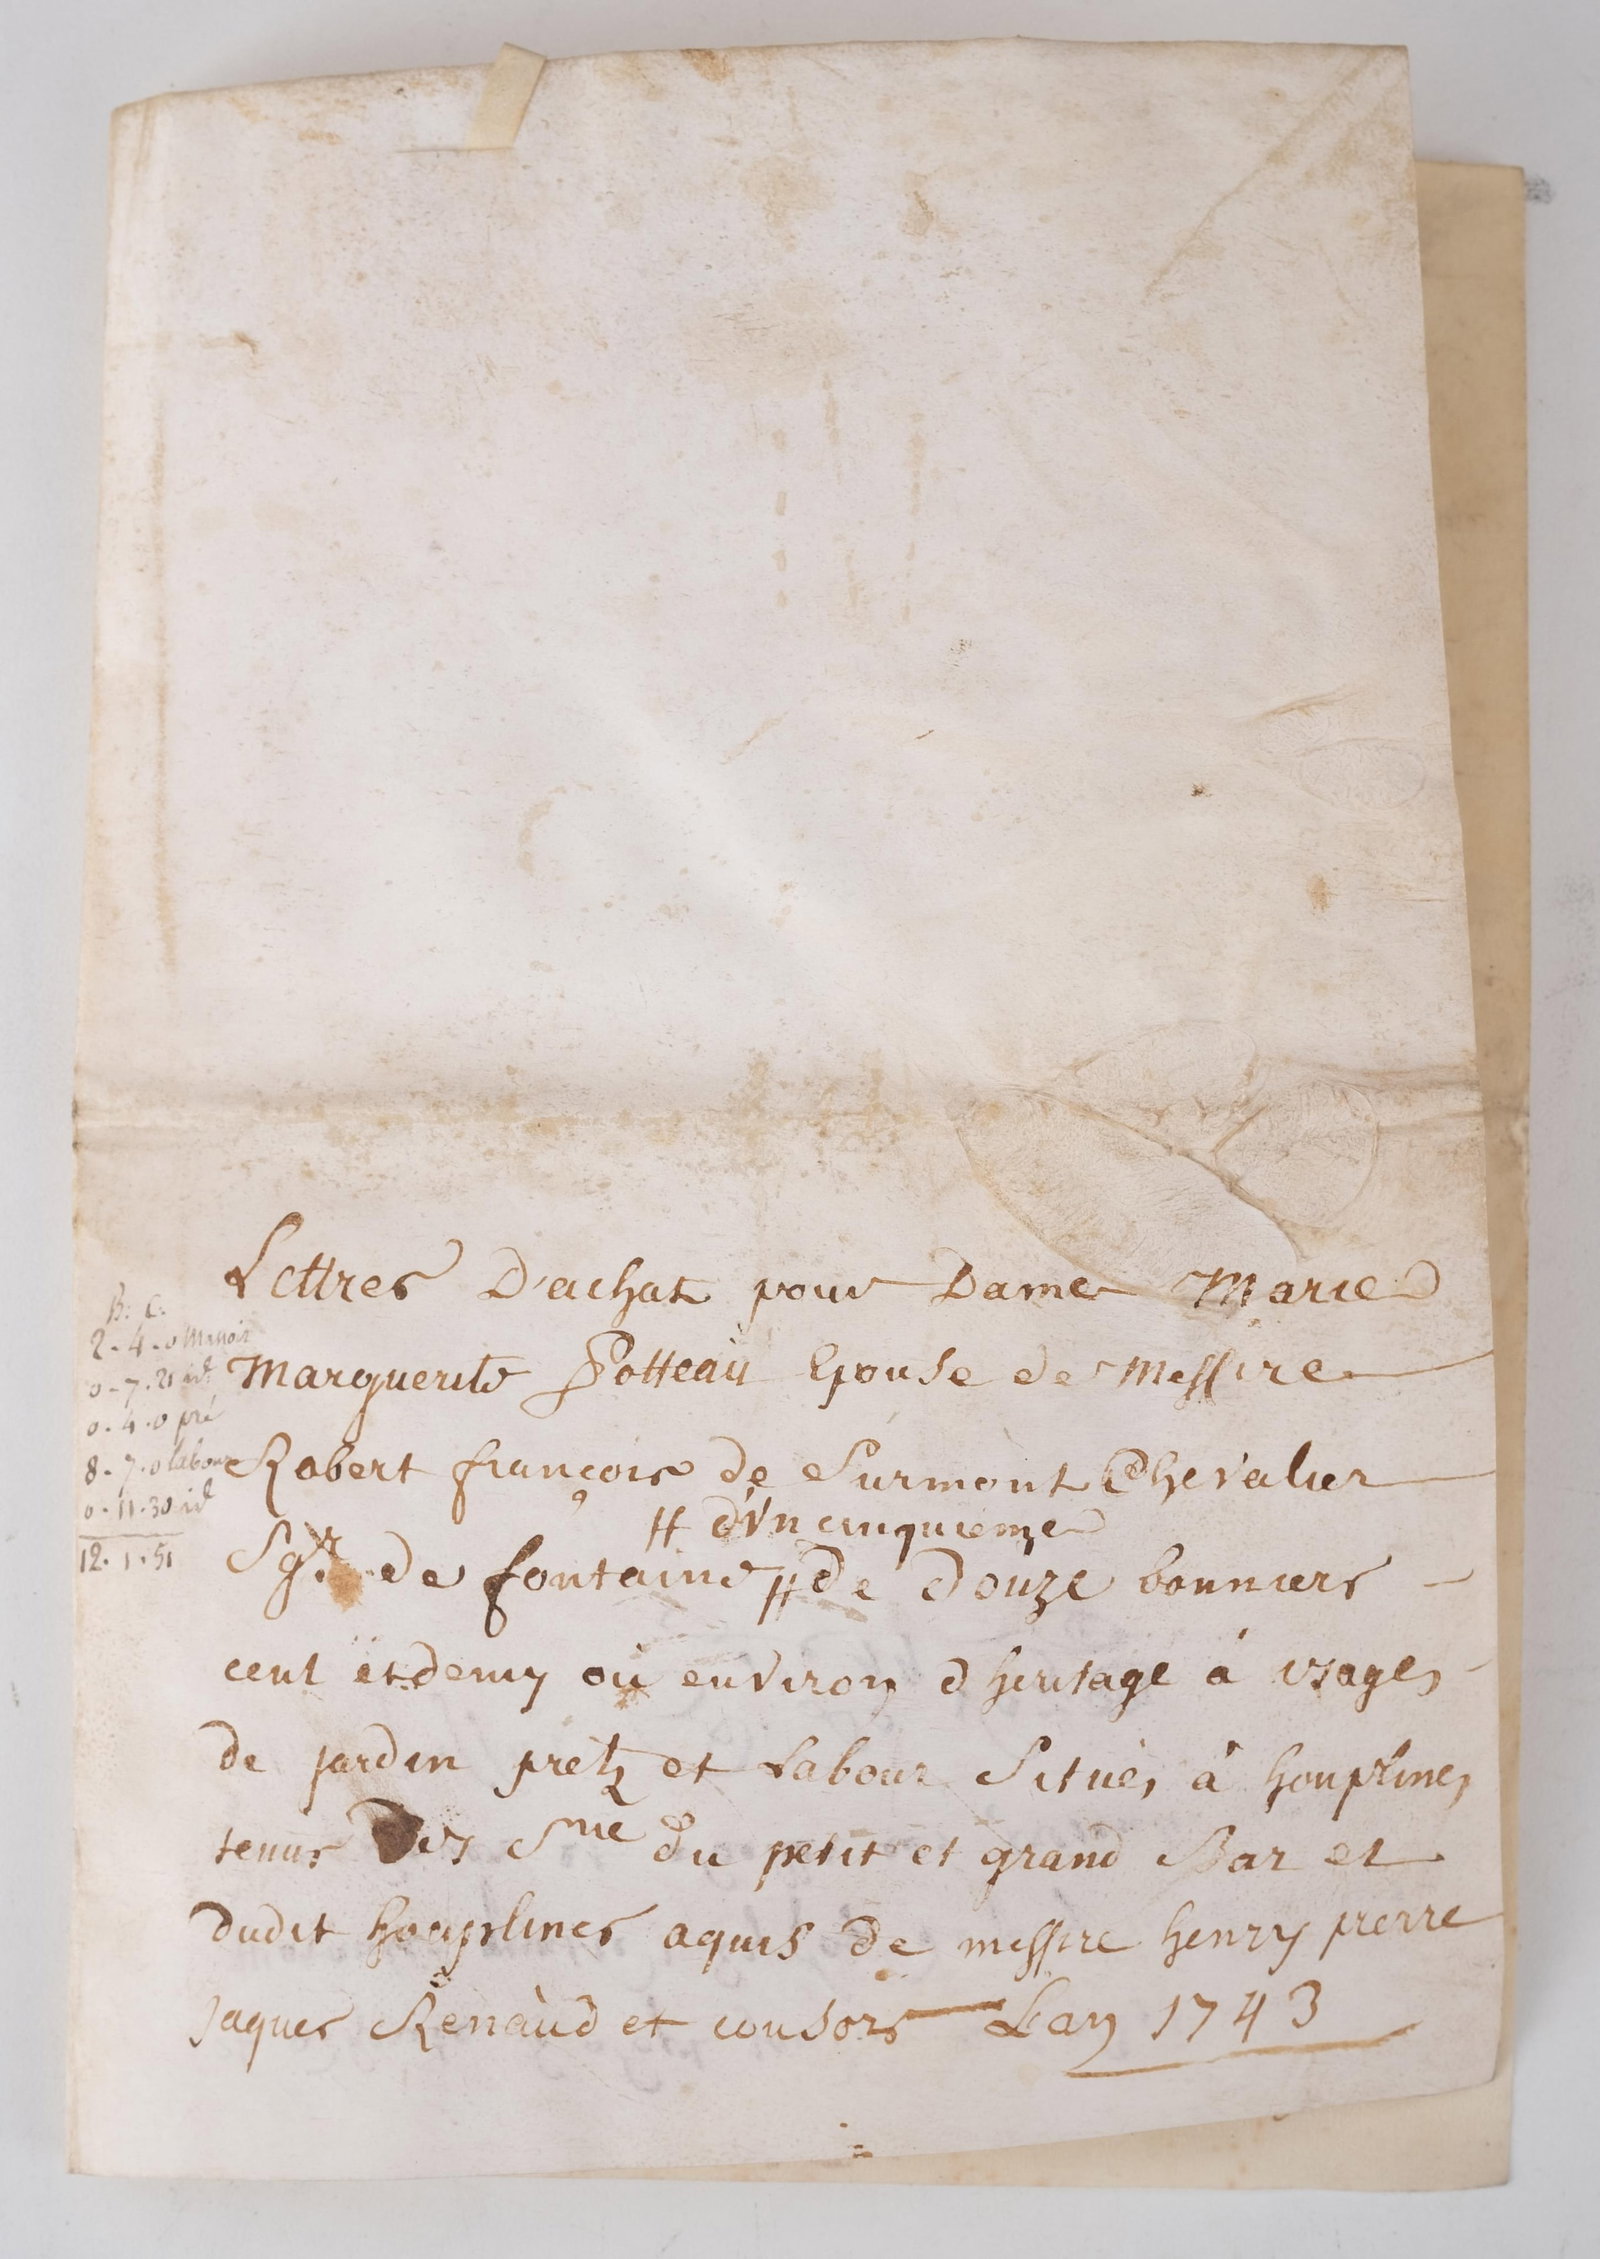 Lettres D'achat pour Dame Marie
Marguerite Potteau Epouse de Messire
Robert françois de Surmont Chevalier
# d'vn cinquieme
Sgr. de fontaine # de Douze bonniers -
cent et demy ou environ d'heritage à vsages
de jardin pretz et Labour Situés à houplines
tenus des Sries du petit et grand Bar et
dudit houplines aquis de messire henry pierre
Jaques Renaud et consors Lan 1743
B. C.
2 - 4 - 0 Manoir
0 - 7 - 21 id
0 - 4 - 0 pré
8 - 7 - 0 labour
0 - 11 - 30 id
12 - 1 - 51